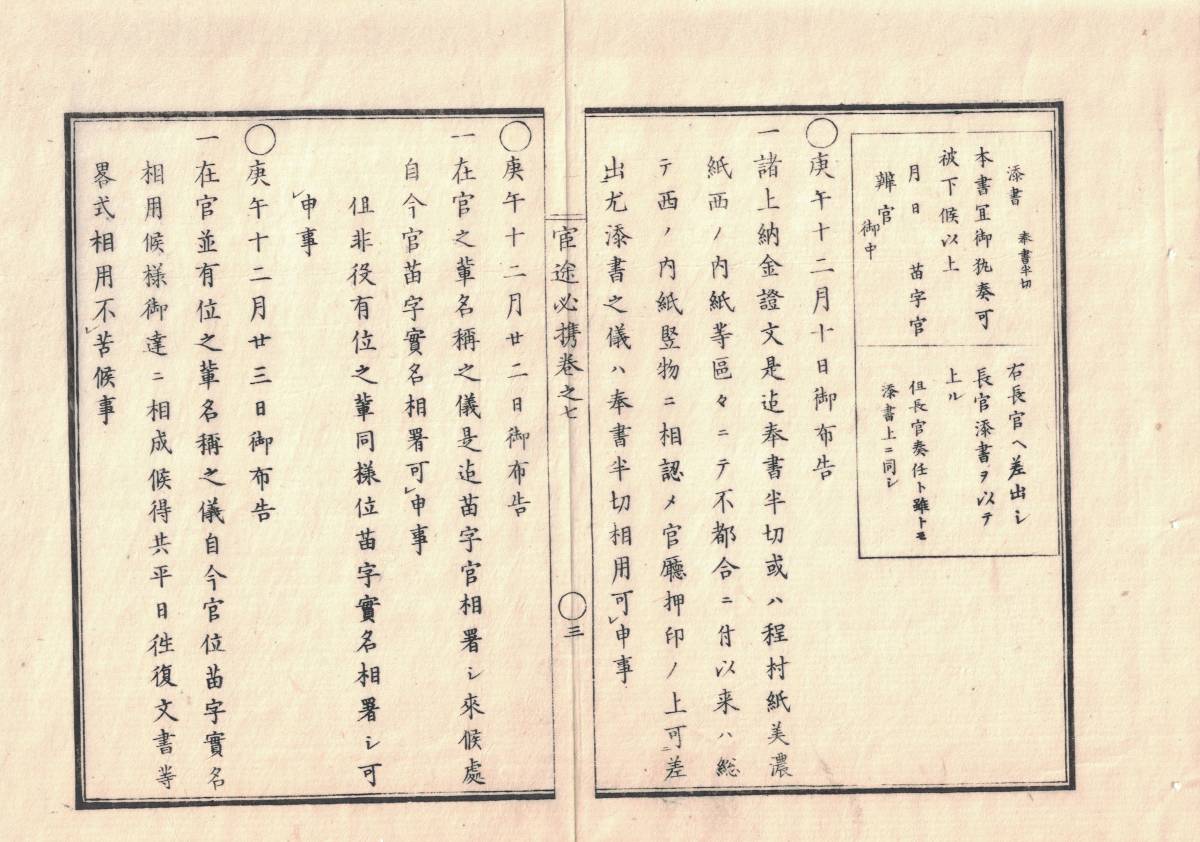 添書 奉書半切
本書冝御執奏可
被下候以上
月日 苗字官
辨官御中
右長官ヘ差出シ
長官添書ヲ以テ
上ル
但長官奏任ト雖トモ
添書上ニ同シ
◯庚午十二月十日御布告
一諸上納金證文是迠奉書半切或ハ程村紙美濃
紙西ノ内紙等區々ニテ不都合ニ付以来ハ総
テ西ノ内紙竪物ニ相認メ官廳押印ノ上可ニ差
出尤添書之儀ハ奉書半切相用可レ申事
宦途必携巻之七
◯三
◯庚午十二月廿二日御布告
一在官之輩名稱之儀是迠苗字官相署シ來候處
自今官苗字實名相署可レ申事
但非役有位之輩同樣位苗字實名相署シ可
レ申事
◯庚午十二月廿三日御布告
一在官並有位之輩名稱之儀自今官位苗字實名
相用候様御達ニ相成候得共平日徃復文書等
畧式相用不レ苦候事